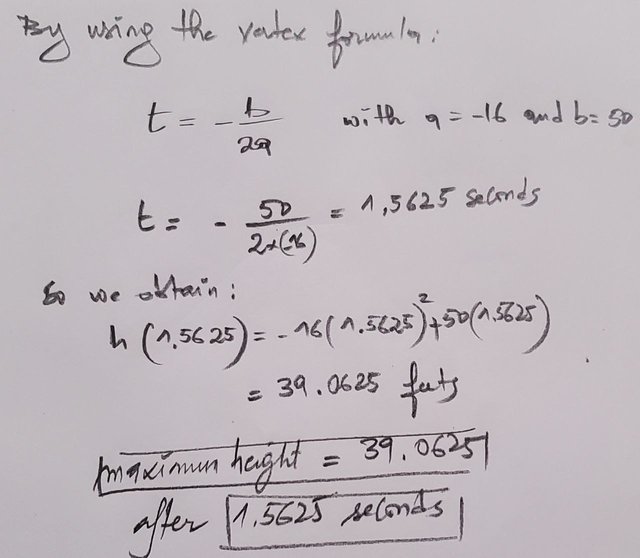 By using the vertex formula:
t = - b/2a with a = -16 and b = 50
t = - 50/2×(-16) = 1,5625 seconds
So we obtain:
h (1.5625) = - 16(1.5625)²+50(1.5625)
= 39.0625 feets
maximum height = 39.0625
after 1.5625 seconds